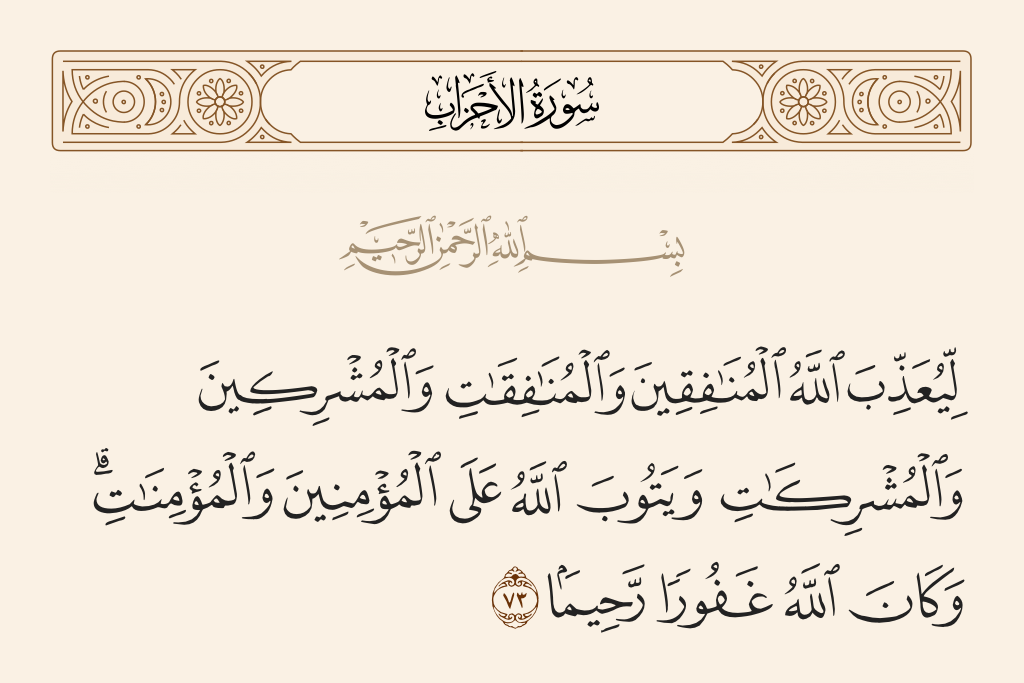 سُورَةُ الأَحْزَابِ
بِسْمِ ٱللَّهِ ٱلرَّحْمَٰنِ ٱلرَّحِيمِ
لِّيُعَذِّبَ ٱللَّهُ ٱلْمُنَٰفِقِينَ وَٱلْمُنَٰفِقَٰتِ وَٱلْمُشْرِكِينَ
وَٱلْمُشْرِكَٰتِ وَيَتُوبَ ٱللَّهُ عَلَى ٱلْمُؤْمِنِينَ وَٱلْمُؤْمِنَٰتِ ۗ
وَكَانَ ٱللَّهُ غَفُورًا رَّحِيمًۢا ٧٣